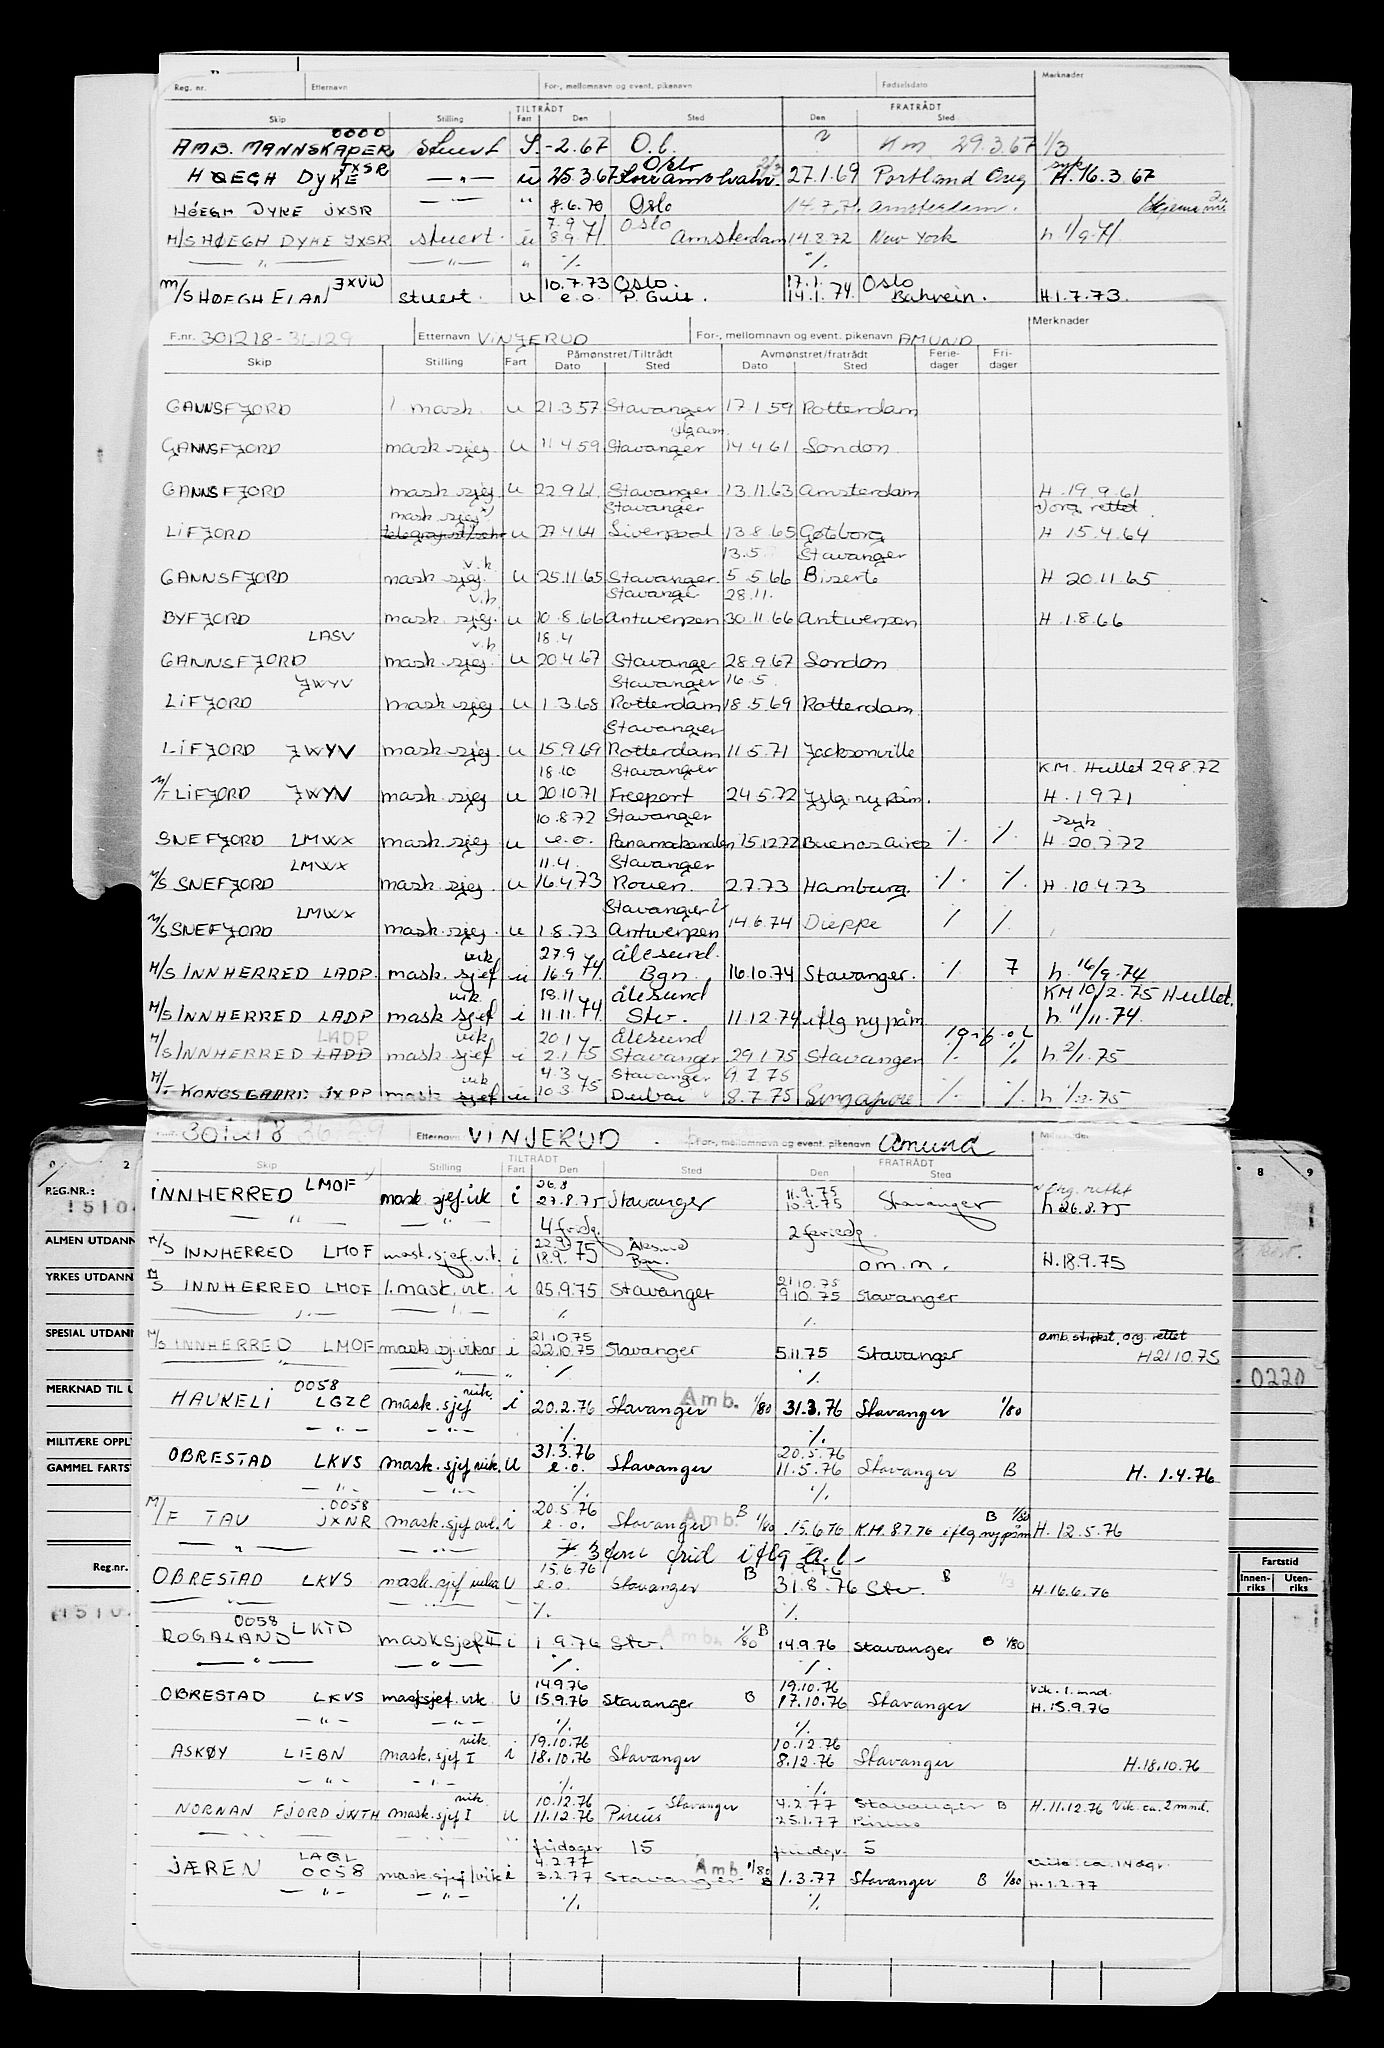 Reg. nr. Etternavn For-, mellomnavn og event. pikenavn Fødselsdato Merknader
TILTRÅDT FRATRÅDT
Skip Stilling Fart Den Sted Den Sted
0000
AMB. MANNSKAPER stuert S. -2.67 O.b. 29.3.67 1/3
HØEGH DYKE JXSR — " — u 25.3.67 Oslo 27.1.69 Portland Oreg syk H. 16.3.67
HÖEGH DYKE JXSR — " — " 8.6.70 Oslo 14.7.71 Amsterdam.
M/S HØEGH DYKE JXSR stuert. u 7.9 8.9.71 Oslo Amsterdam 14.3.72 New York h 1/9.71
— " — — " — " % %
JXVW 10.7.73 Oslo. 17.1. Oslo
M/S HØEGH ELAN stuert. u e.o. P. Gulf. 14.1.74. Bahrein. H 1.7.73.
F.nr. 301218-36129 Etternavn VINJERUD For-, mellomnavn og event. pikenavn AMUND Merknader
Påmønstret/Tiltrådt Avmønstret/fratrådt Ferie- Fri-
Skip Stilling Fart Dato Sted Dato Sted dager dager
GANNSFJORD 1 mask. u 21.3.57 Stavanger 17.1.59 Rotterdam
GANNSFJORD mask.sjef u 11.4.59 Stavanger 14.4.61 London
GANNSFJORD mask sjef u 22.9.61 Stavanger 13.11.63 Amsterdam H. 19.9.61
mask sjef Stavanger Org. rettet.
LIFJORD u 27.4.64 Liverpool 13.8.65 Gøtborg H 15.4.64
13.5. Stavanger
v.k
GANNSFJORD mask sjef. u 25.11.65 Stavanger. 5.5.66 Biserte H 20.11.65
v.k Stavanger 28.11.
BYFJORD mask. sjef. u 10.8.66 Antwerpen 30.11.66 Antwerpen H. 1.8.66
LASV v.k 18.4
GANNSFJORD mask. sjef. u 20.4.67 Stavanger 28.9.67 London
JWYV Stavanger 16.5.
LIFJORD mask sjef u 1.3.68 Rotterdam 18.5.69 Rotterdam
Stavanger
LIFJORD JWYV mask.sjef. u 15.9.69 Rotterdam 11.5.71 Jacksonville
18.10 Stavanger KM. Hullet 29.8.72
M/T LIFJORD JWYV mask. sjef u 20.10.71 Freeport 24.5.72 Iflg. ny påm. H. 1.9.71
10.8.72 Stavanger syk
SNEFJORD LMWX mask. sjef u e.o. Panamakanalen 15.12.72 Buenos Aires % % H 20.7.72
LMWX 11.4. Stavanger
M/S SNEFJORD mask. sjef. u 16.4.73 Rouen. 2.7.73 Hamburg. % % H. 10.4.73
LMWX Stavanger
M/S SNEFJORD mask. sjef. u 1.8.73 Antwerpen 14.6.74 Dieppe % %
vik. 27.9 Ålesund.
M/S INNHERRED LADP. mask. sjef u 16.9.74. Bgn. 16.10.74 Stavanger. % 7 h. 16/9.74
vik. 18.11 Ålesund KM 10/2.75 Hullet.
M/S INNHERRED LADP mask sjef i 11.11.74. Stv. 11.12.74 iflg ny påm h. 11/11.74.
LADP vik. 20.1 Ålesund
M/S INNHERRED LADP mask. sjef i 2.1.75 Stavanger 29.1.75 Stavanger % % h 2/1.75
vik 4.3 Stavanger 9.7.75
M/T KONGSGAARD JXPP mask sjef u 10.3.75 Dubai 8.7.75 Singapore % % h 1/3.75
301218 36 29 Etternavn VINJERUD For-, mellomnavn og event. pikenavn Amund Merknader
TILTRÅDT FRATRÅDT
Skip Stilling Fart Den Sted Den Sted
26.8 11.9.75 org. rettet
INNHERRED LMOF mask. sjef. vik i 27.8.75 Stavanger 10.9.75 Stavanger h 26.8.75
— " — — " — 4 frida. 2 feriedg.
M/S INNHERRED LMOF mask. sjef. vik. i 22.9. 18.9.75 Ålesund Bgn. o.m.m. H. 18.9.75
M/S INNHERRED LMOF 1. mask. vik. i 25.9.75 Stavanger 21.10.75 9.10.75 Stavanger
— " — — " — % %
21.10.75 org. rettet
M/S INNHERRED LMOF mask. sj. vikar i 22.10.75 Stavanger 5.11.75 Stavanger H 21.10.75
— " — — " — % %
0058 vik.
HAUKELI LGZC mask. sjef i 20.2.76 Stavanger Amb. 1/80 31.3.76 Stavanger 1/80
— " — — " — % %
31.3.76 20.5.76
OBRESTAD LKVS mask. sjef vik. U e.o. Stavanger 11.5.76 Stavanger B H. 1.4.76
— " — — " — % %
.0058 20.5.76 B 1/80
M/F TAU JXNR mask. sjef avl. i e.o. Stavanger Amb. B 1/80 15.6.76 KM. 8.7.76 iflg ny påm H. 12.5.76
— " — — " — % 3 frid iflg a.l.
15.6.76
OBRESTAD LKVS mask. sjef vikar U e.o. Stavanger B 31.8.76 Stv. B H. 16.6.76
— " — — " — % %
0058
ROGALAND LKTD mask sjef II i 1.9.76 Stv. Amb. 1/80 B 14.9.76 Stavanger B 1/80
— " — — " — % %
14.9.76 19.10.76 Vik. 1. mnd.
OBRESTAD LKVS mask sjef. vik. U 15.9.76 Stavanger B 17.10.76 Stavanger H. 15.9.76
— " — — " — % %
vik. 19.10.76 10.12.76
ASKØY LEBN mask. sjef I i 18.10.76 Stavanger 8.12.76 Stavanger H. 18.10.76
— " — — " — % %
vik. 10.12.76 Stavanger 4.2.77 Stavanger B
NORNAN FJORD JWTH mask. sjef I u 11.12.76 Pireus 25.1.77 Pireus H. 11.12.76 Vik. ca. 2 mnd.
— " — — " — fridager 15 fridgr. 5
LAQL 4.2.77 vik. ca. 14 dgr.
JÆREN 0058 mask sjef vik i 3.2.77 Stavanger Amb. 1/80 B 1.3.77 Stavanger B 1/80 H. 1.2.77
— " — — " — % %
REG.NR.:
ALMEN UTDANN
YRKES UTDANN
SPESIAL UTDANN
MERKNAD TIL U
MILITÆRE OPPL
GAMMEL FARTS
Reg.nr.
8 9
0220
Fartstid
Innen-riks Uten-riks